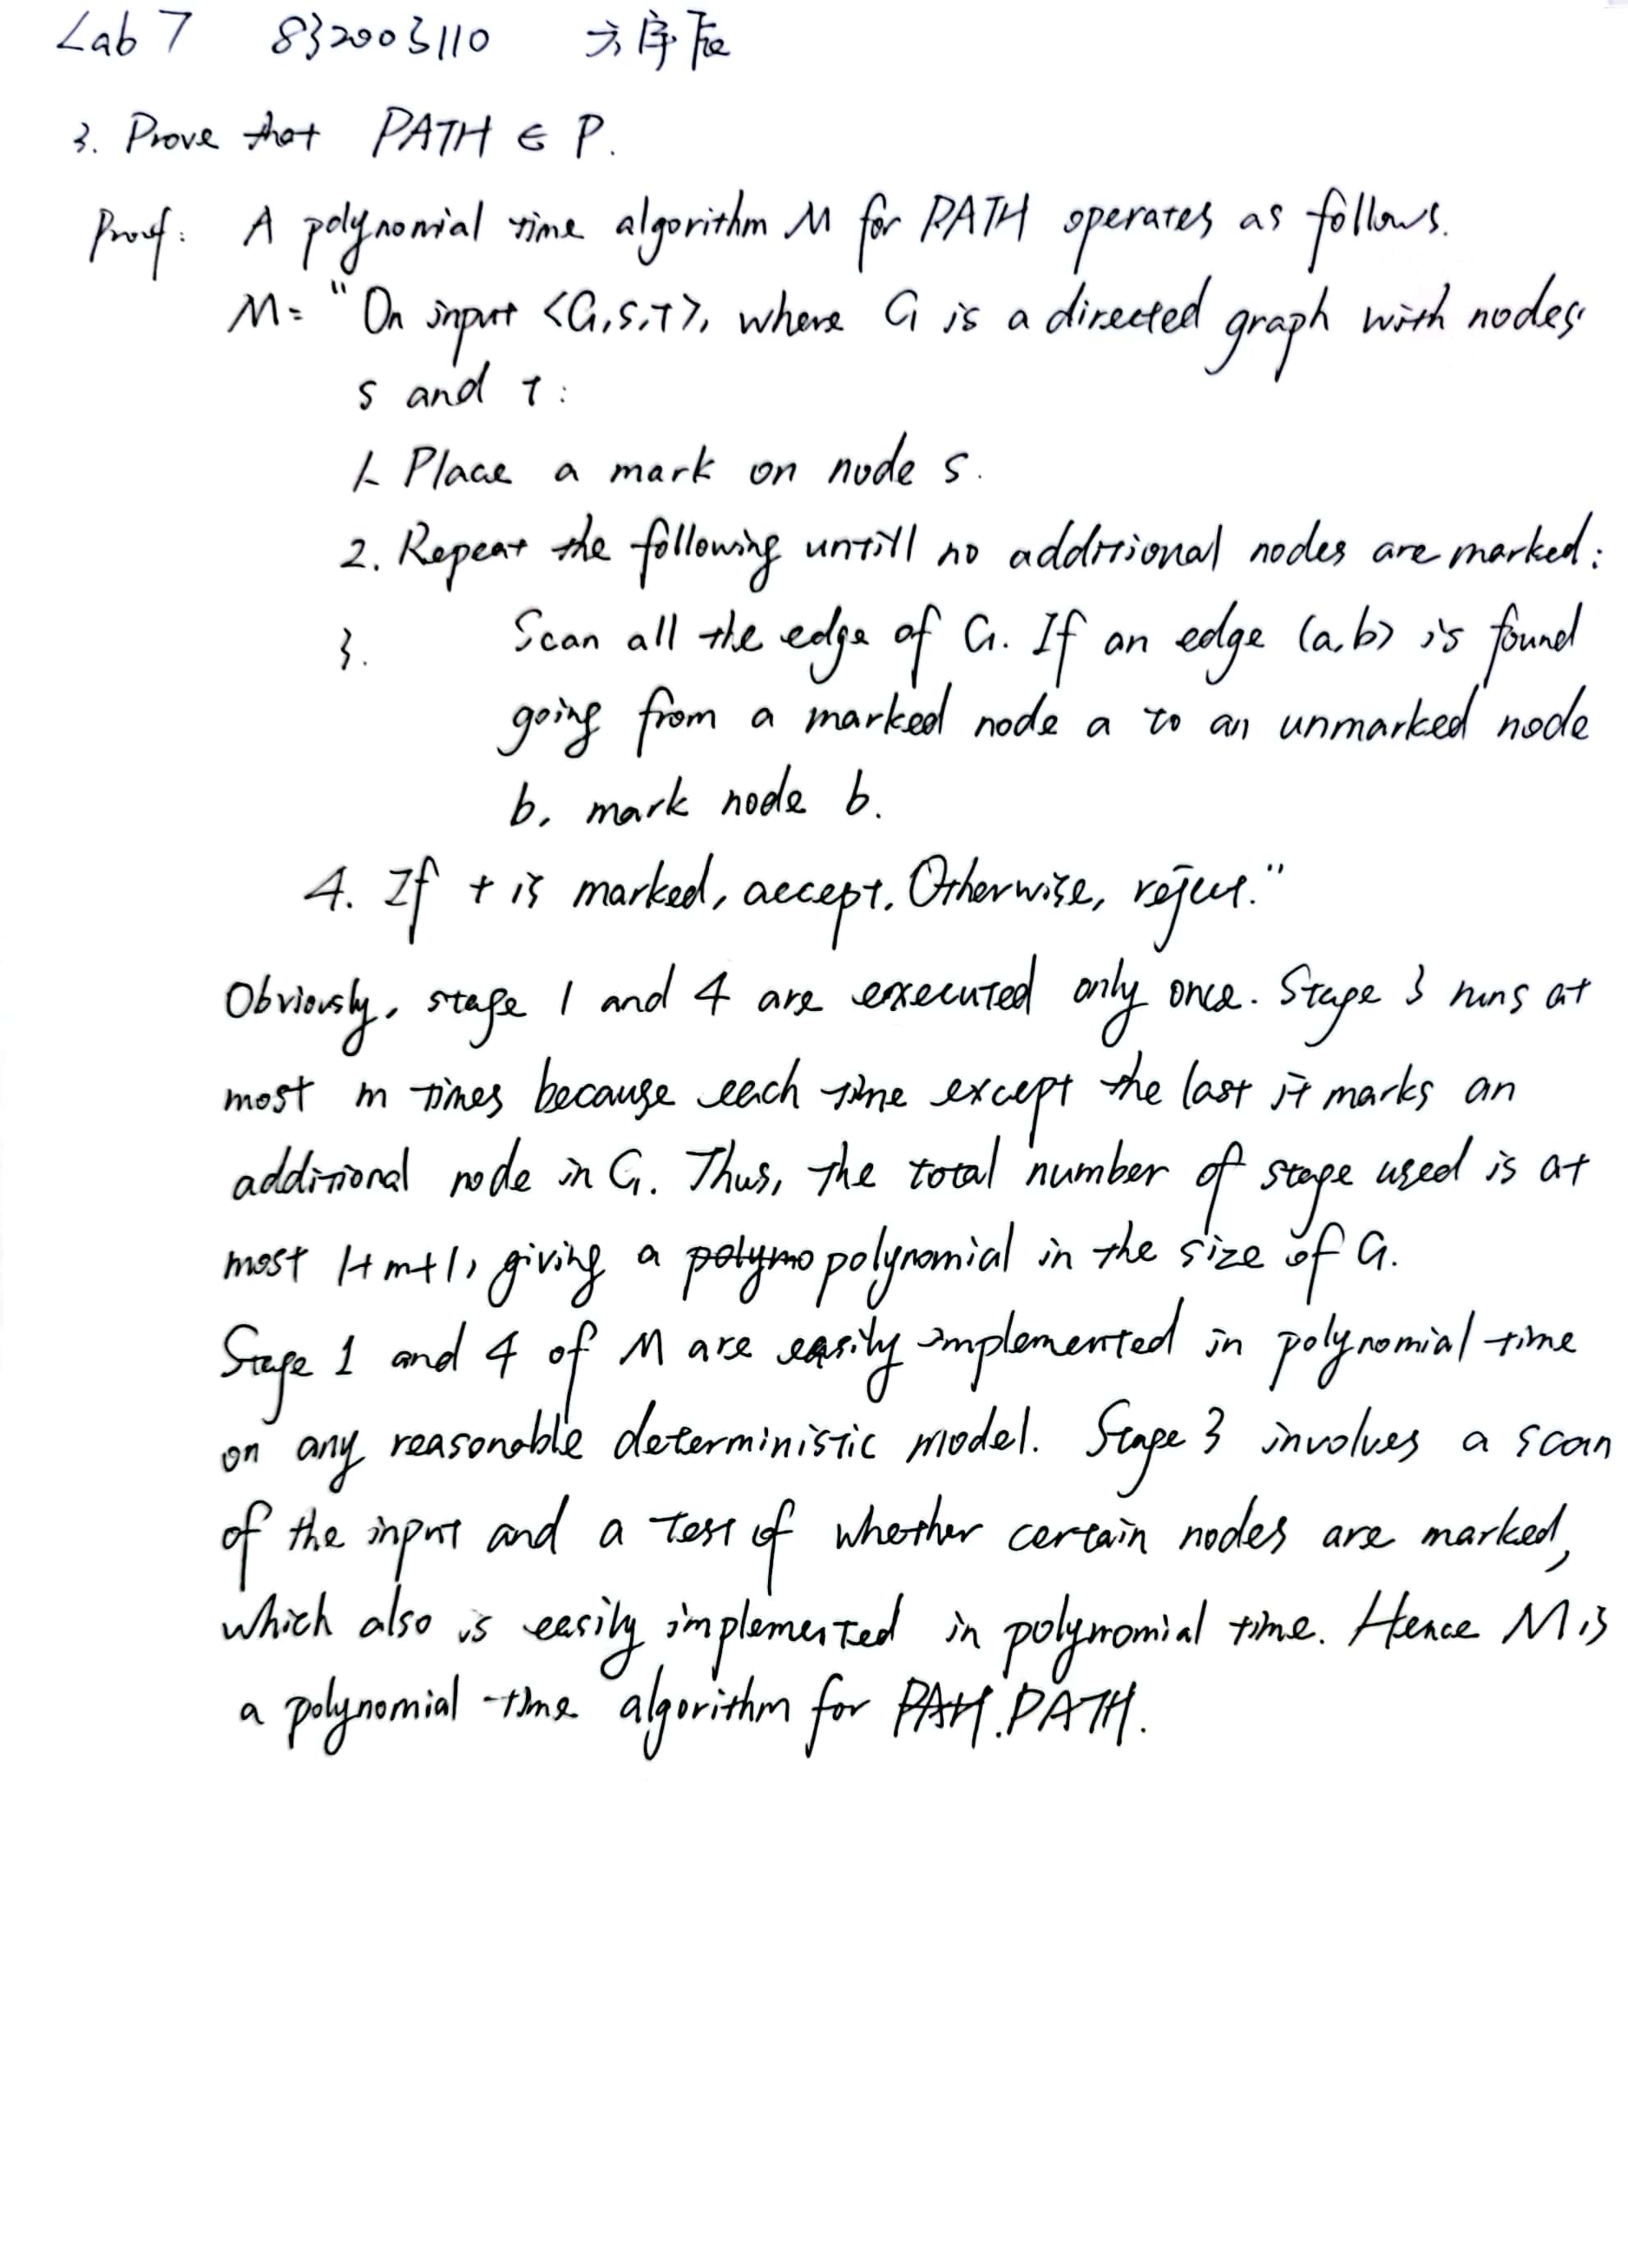 Lab 7 832003110 方序
3. Prove that PATH ∈ P.
Proof: A polynomial time algorithm M for PATH operates as follows.
M= "On input <G,s,t>, where G is a directed graph with nodes
s and t:
1. Place a mark on node s.
2. Repeat the following untill no additional nodes are marked:
3. Scan all the edge of G. If an edge (a,b) is found
going from a marked node a to an unmarked node
b, mark node b.
4. If t is marked, accept. Otherwise, reject."
Obviously, stage 1 and 4 are executed only once. Stage 3 runs at
most m times because each time except the last it marks an
additional node in G. Thus, the total number of stage used is at
most 1+m+1, giving a polymo polynomial in the size of G.
Stage 1 and 4 of M are easily implemented in polynomial time
on any reasonable deterministic model. Stage 3 involves a scan
of the input and a test of whether certain nodes are marked,
which also is easily implemented in polynomial time. Hence M is
a polynomial time algorithm for PAH. PATH.